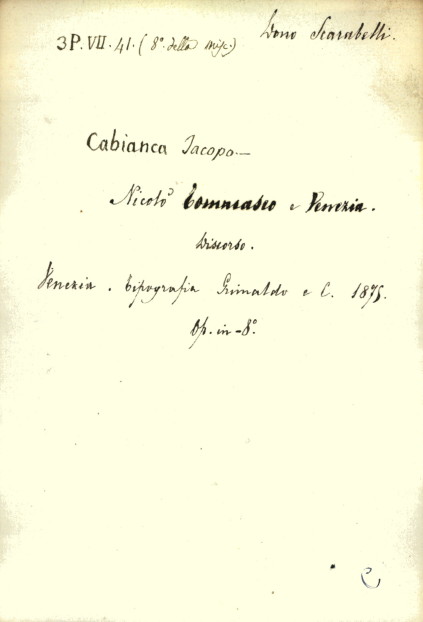 3P.VII.41.(8º. della misc.)
Dono Scarabelli.
Cabianca Jacopo—
Nicolò Tommaseo e Venezia.
Discorso.
Venezia. Tipografia Grimaldo e C. 1875.
Op. in-8º.